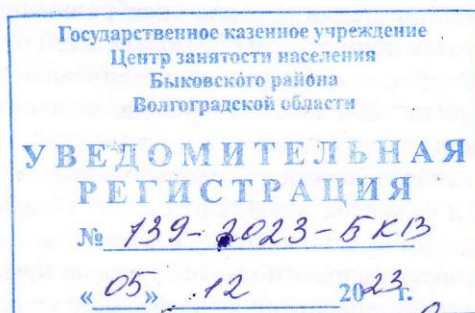 Государственное казенное учреждение
Центр занятости населения
Быковского района
Волгоградской области
УВЕДОМИТЕЛЬНАЯ
РЕГИСТРАЦИЯ
№ 139-2023-БКВ
«05» 12 2023г.